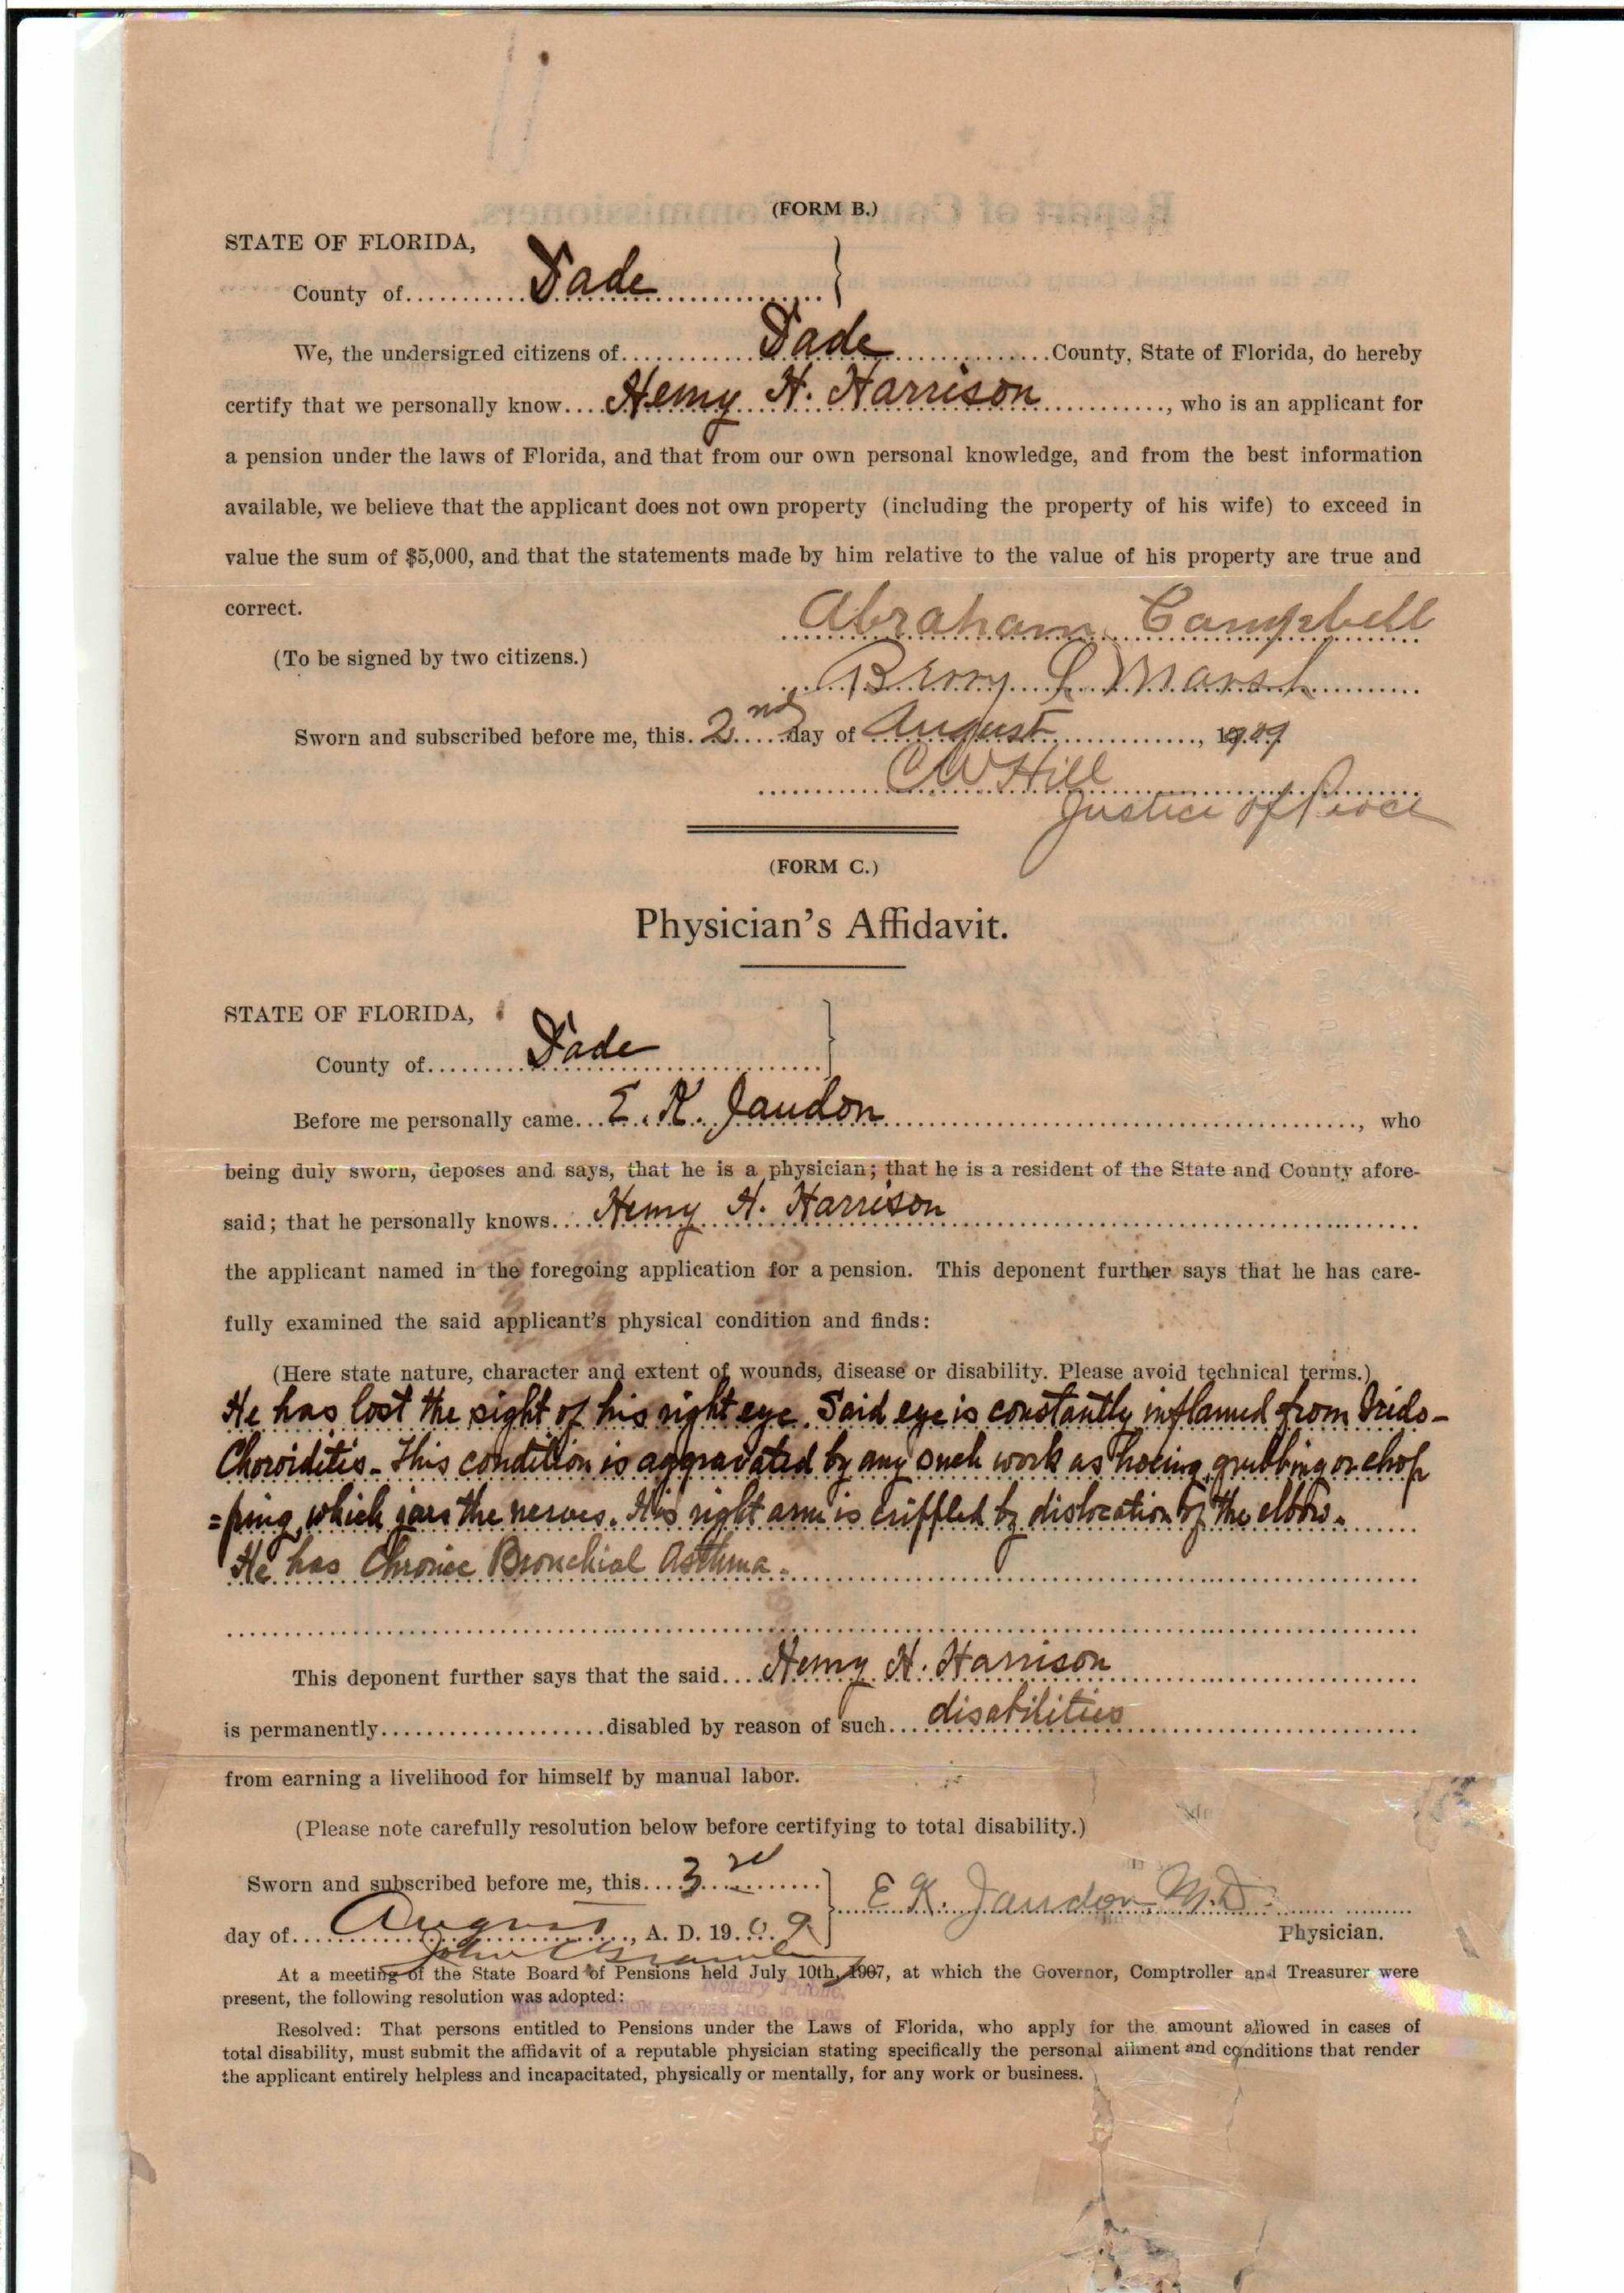 (FORM B.)
STATE OF FLORIDA,
County of Dade
We, the undersigned citizens of Dade County, State of Florida, do hereby
certify that we personally know Henry H. Harrison, who is an applicant for
a pension under the laws of Florida, and that from our own personal knowledge, and from the best information
available, we believe that the applicant does not own property (including the property of his wife) to exceed in
value the sum of $5,000, and that the statements made by him relative to the value of his property are true and
correct.
Abraham Campbell
(To be signed by two citizens.)
Berry L Marsh
Sworn and subscribed before me, this 2nd day of August, 1909
CW Hill
Justice of Peace
(FORM C.)
Physician's Affidavit.
STATE OF FLORIDA,
County of Dade
Before me personally came E. K. Jaudon, who
being duly sworn, deposes and says, that he is a physician; that he is a resident of the State and County afore-
said; that he personally knows Henry H. Harrison
the applicant named in the foregoing application for a pension. This deponent further says that he has care-
fully examined the said applicant's physical condition and finds:
(Here state nature, character and extent of wounds, disease or disability. Please avoid technical terms.)
He has lost the sight of his right eye. Said eye is constantly inflamed from Irido-
Choroiditis - This condition is aggravated by any such work as hoeing, grubbing or chop
=ping, which jars the nerves. His right arm is crippled by dislocation of the elbow.
He has Chronic Bronchial Asthma.
This deponent further says that the said Henry H. Harrison
is permanently disabled by reason of such disabilities
from earning a livelihood for himself by manual labor.
(Please note carefully resolution below before certifying to total disability.)
Sworn and subscribed before me, this 3rd
E K. Jaudon M.D.
day of August, A. D. 1909
Physician.
John C
At a meeting of the State Board of Pensions held July 10th, 1907, at which the Governor, Comptroller and Treasurer were
Notary Public.
present, the following resolution was adopted:
COMMISSION EXPIRES AUG.
Resolved: That persons entitled to Pensions under the Laws of Florida, who apply for the amount allowed in cases of
total disability, must submit the affidavit of a reputable physician stating specifically the personal ailment and conditions that render
the applicant entirely helpless and incapacitated, physically or mentally, for any work or business.